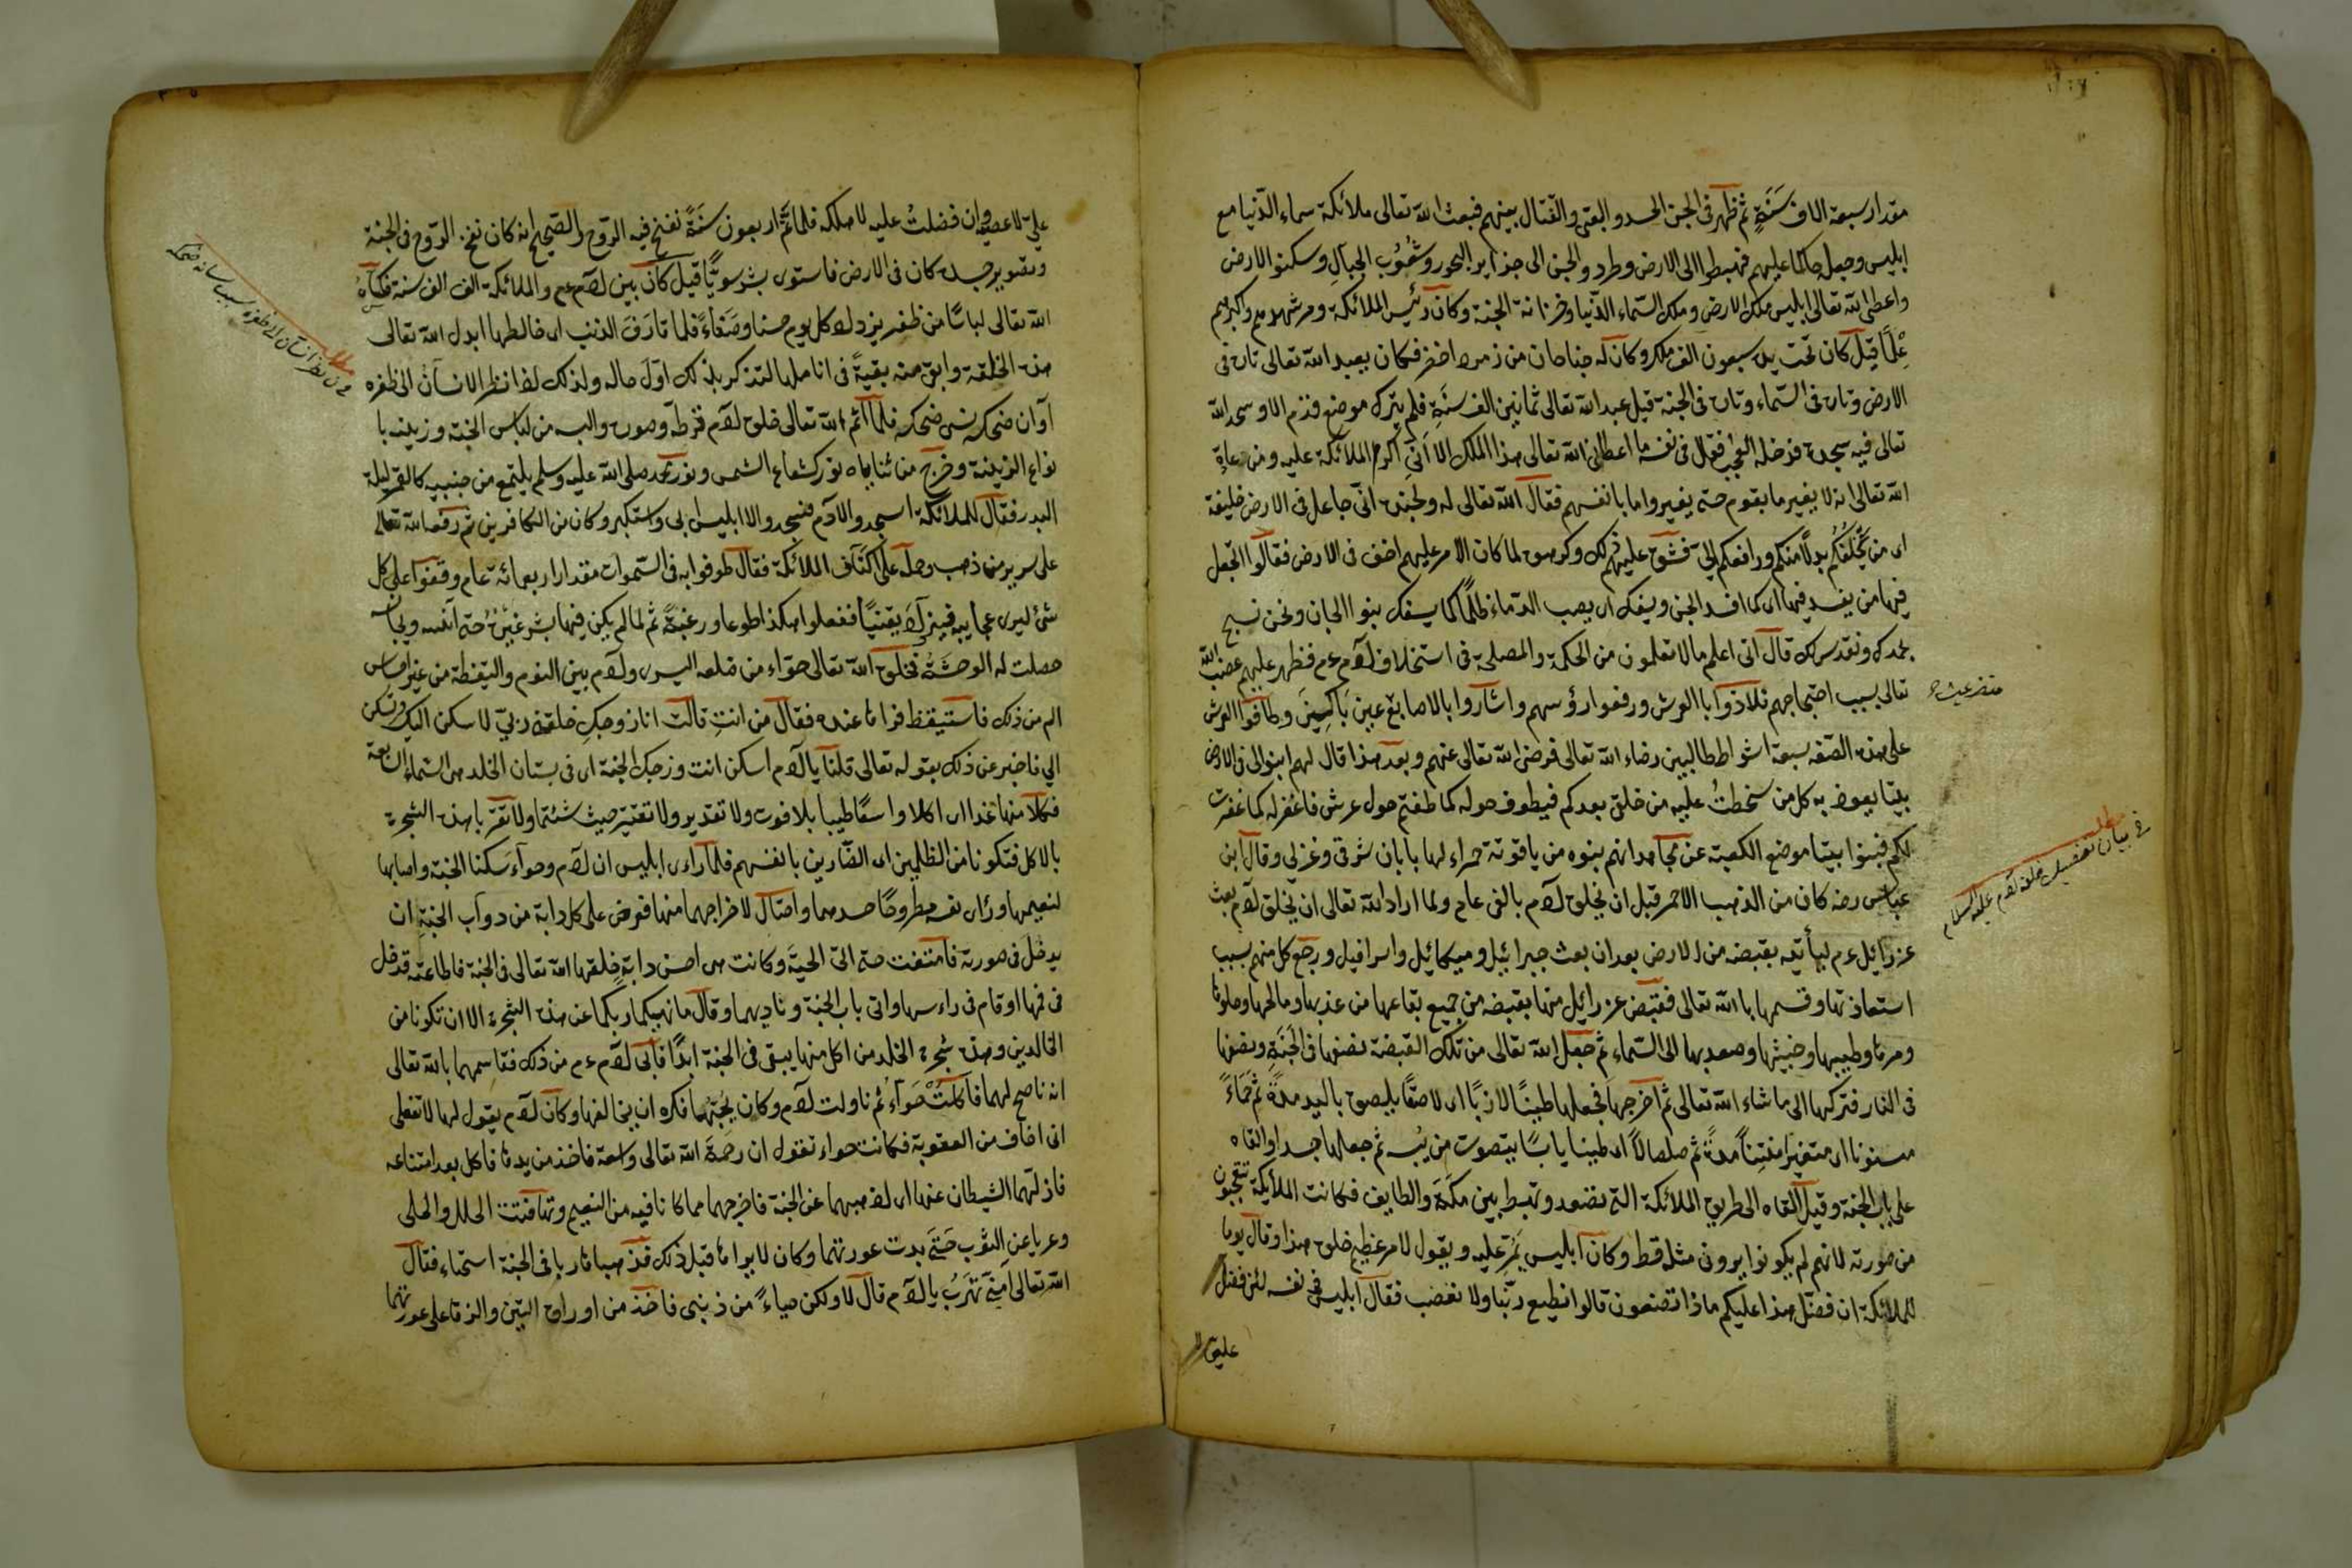 مقدار سبعة الاف سَنَةٍ ثم ظهر فى الجن الحسد والبغى والقتال بينهم فبعث الله تعالى ملائكة سماء الدّنيا مع
ابليس وجعل حاكما عليهم فهبطوا الى الارض وطردوا الجن الى جزاير البحور وشُعُوب الجبال وسكنوا الارض
واعطى الله تعالى ابليس ملك الارض وملك السّماء الدّنيا وخزانة الجنة وكان رئيس الملائكة ومرشدهم واكبرهم
عِلْمًا قيل كان تحت يده سبعون الف ملك وكان له جناحان من زمرد اخضر فكان يعبد الله تعالى تارة فى
الارض وتارة فى السّماء وتارة فى الجنة قيل عبد الله تعالى ثمانين الف سَنَةٍ فلم يترك موضع قدم الا وسجد لله
تعالى فيه سجدة فدخله العُجب فقال فى نفسه ما اعطانى الله تعالى هذا الملك الا انّى اكرم الملائكة عليه ومن عادة
الله تعالى انه لا يغير ما بقوم حتى يغيروا ما بانفسهم فقال الله تعالى له ولجنده انّى جاعل فى الارض خليفة
اى من يَخْلُفُكُم بدلًا منكم ورافعكم الىّ فشق عليهم ذلك وكرهوه لما كان الامر عليهم اخف فى الارض فقالوا اتجعل
فيها من يفسد فيها اى كما افسد الجن ويسفك اى يصب الدّماء ظلمًا كما يسفك بنوا الجان ونحن نسبح
بحمدك ونقدس لك قال انى اعلم ما لا تعلمون من الحكمة والمصلحة فى استخلاف لآدم عم فظهر عليهم غضب الله
تعالى بسبب احتجاجهم فلاذوا بالعرش ورفعوا رؤسهم واشاروا بالاصابع عين باكيين وطافوا العرش
على هذه الصّفة سبعة اشواط طالبين رضاء الله تعالى فرضى الله تعالى عنهم وبعد هذا قال لهم ابنوا لى فى الارض
بيتا يعوذ به كل من سخطتُ عليه من خلقى بعدكم فيطوف حوله كما طفتم حول عرشى فاغفر له كما غفرت
لكم فبنوا بيتا موضع الكعبة عن مجاهد انهم بنوه من ياقوتة حمراء لها بابان شرقى وغربى وقال ابن
عباس رضه كان من الذهب الاحمر قبل ان يخلق لآدم بالفى عام ولما اراد الله تعالى ان يخلق لآدم بعث
عزرائيل عم ليأتيه بقبضة من الارض بعد ان بعث جبرائيل وميكائيل واسرافيل ورجع كل منهم بسبب
استعاذتها وقسمها بالله تعالى فقبض عزرائيل منها بقبضة من جميع بقاعها من عذبها ومالحها وحلوها
ومرها وطيبها وخبيثها وصعد بها الى السّماء ثم جعل الله تعالى من تلك القبضة نصفها فى الجَنَّةِ ونصفها
فى النار فتركها الى ما شاء الله تعالى ثم اخرجها فجعلها طينًا لازبًا اى لاصقًا يلصق باليد مدةً ثم حَمَاءً
مسنونا اى متغيرا منتنًا مدةً ثم صلصالًا اى طينا يابسًا يتصوت من يُبسه ثم جعلها جسدا والقاه
على باب الجنة وقيل القاه الى طريق الملائكة التى تصعد وتهبط بين مكّة والطايف فكانت الملائكة تتعجبون
من صورته لانهم لم يكونوا يرون مثله قط وكان ابليس يَمُرّ عليه ويقول لامر عظيم خلق هذا وقال يوما
للملائكة ان فضل هذا عليكم ماذا تصنعون قالوا نطيع ربّنا ولا نغضب فقال ابليس فى نفسه لئن فضل
فى بيان تفصيل خلقة آدم عليه السلام
علىّ لاعصينه وان فضلتُ عليه لاهلكه فلما تمّ اربعون سَنَةً نفخ فيه الروح والصّحيح انه كان نفخ الروح فى الجنة
وتصوير جسده كان فى الارض فاستوى بشرا سويًّا قيل كان بين لآدم عم والملائكة الف الف سنة فكساهُ
الله تعالى لباسًا من ظفر يزداد كل يوم حسنا وصَفاءً فلما قارَفَ الذنب اى خالطها ابدل الله تعالى
هذه الخلقة وابقى منه بقيةً فى اناملها لتذكر بذلك اوّل حاله ولذلك اذا نظر الانسان الى ظفره
آوان ضحكه نسى ضحكه فلما اتم الله تعالى خلق لآدم قرطه وصوره والبسه من لباس الجنة وزينه با
نواع الزينة وخرج من ثناياه نور كشعاع الشمس ونور محمد صلى الله عليه وسلم يلتمع من جنبيه كالقمر ليلة
البدر فقال للملائكة اسجدوا لآدم فسجدوا الا ابليس ابى واستكبر وكان من الكافرين ثم رفعه الله تعالى
على سرير من ذهب وحمله على اكتاف الملائكة فقال طوفوا به فى السّموات مقدار اربعمائة عام وقفوا على كل
شئ ليرى عجايبه فيزداد يقينًا ففعلوا هكذا طوعا ورغبةً ثم لما لم يكن فيها بشر غيرُهُ حتى آنسه ويجانسه
حصلت له الوحشةُ فخلق الله تعالى حوّاء من ضلعه اليسرى ولآدم بين النوم واليقظة من غير احساس
الم من ذلك فاستيقظ فراها عنده فقال من انتِ قالت انا زوجك خلقنى ربّى لاسكن اليك وتسكن
الى فاخبر عن ذلك بقوله تعالى قلنا يا لآدم اسكن انت وزوجك الجنة اى فى بستان الخلد من السّماء السّابعة
فكلا منها رغدا اى اكلا واسعًا طيبا بلا فوت ولا تقدير ولا تقتير حيث شئتما ولا تقربا هذه الشجرة
بالاكل فتكونا من الظالمين اى الضّارين بانفسهم فلما راى ابليس ان لآدم وحوآء سَكنا الجنة واصابها
لنعيمها وراى نفسه مطروحًا حسدهما واحتال لاخراجهما منها فعرض على كل دابة من دوآب الجنة ان
يدخل فى صورته فامتنعت حتى اتى الحيّة وكانت هى احسن دابةٍ خلقها الله تعالى فى الجنة فاطاعته فدخل
فى فمها او قام فى راسها واتى باب الجنة وناديهما وقال ما نهيكما ربكما عن هذه الشجرة الا ان تكونا من
الخالدين وهذه شجرة الخلد من اكل منها يبقى فى الجنة ابدًا فابى لآدم عم من ذلك فقاسمهما بالله تعالى
انه ناصح لهما فاكلتْ حوّاءُ ثم ناولت لآدم وكان يحبّها فكره ان يخالفها وكان لآدم يقول لها لا تفعلى
انى اخاف من العقوبة فكانت حواء تقول ان رحمة الله تعالى واسعة فاخذ من يدها فاكل بعد امتناعه
فازلهما الشيطان عنها اى اذهبهما عن الجنة فاخرجهما مما كانا فيه من النعيم وتهافتت الحلل والحلى
وعريا عن الثوب حَتّى بدت عورتهما وكان لا يراها قبل ذلك فذهبا هاربا فى الجنة استحياء فقال
الله تعالى أمِنّى تهَرَبُ يا لآدم قال لا ولكن حياءً من ذنبى فاخذ من اوراق التين والزقا على عورتهما